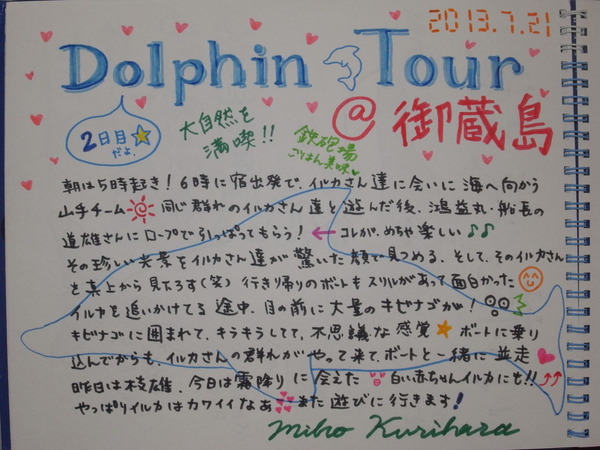 2013.7.21
Dolphin Tour
@ 御蔵島
2日目
だよ.
大自然を
満喫!!
鉄砲場
ごはん美味
朝は5時起き!6時に宿出発で、イルカさん達に会いに海へ向かう
山手チーム 同じ群れのイルカさん達と遊んだ後、鴻益丸・船長の
道雄さんにロープで引っぱってもらう! ← コレが、めちゃ楽しい♪♪
その珍しい光景をイルカさん達が驚いた顔で見つめる、そして、そのイルカさん
を真上から見下ろす(笑) 行き帰りのボートもスリルがあって面白かった
イルカを追いかけてる途中、目の前に大量のキビナゴが!
キビナゴに囲まれて、キラキラしてて、不思議な感覚★ ボートに乗り
込んでからも、イルカさんの群れがやって来て、ボートと一緒に並走
昨日は枝雄、今日は霜降りに会えた 白い赤ちゃんイルカにも!! ↑↑
やっぱりイルカはカワイイなぁ また遊びに行きます!
Miho Kurihara